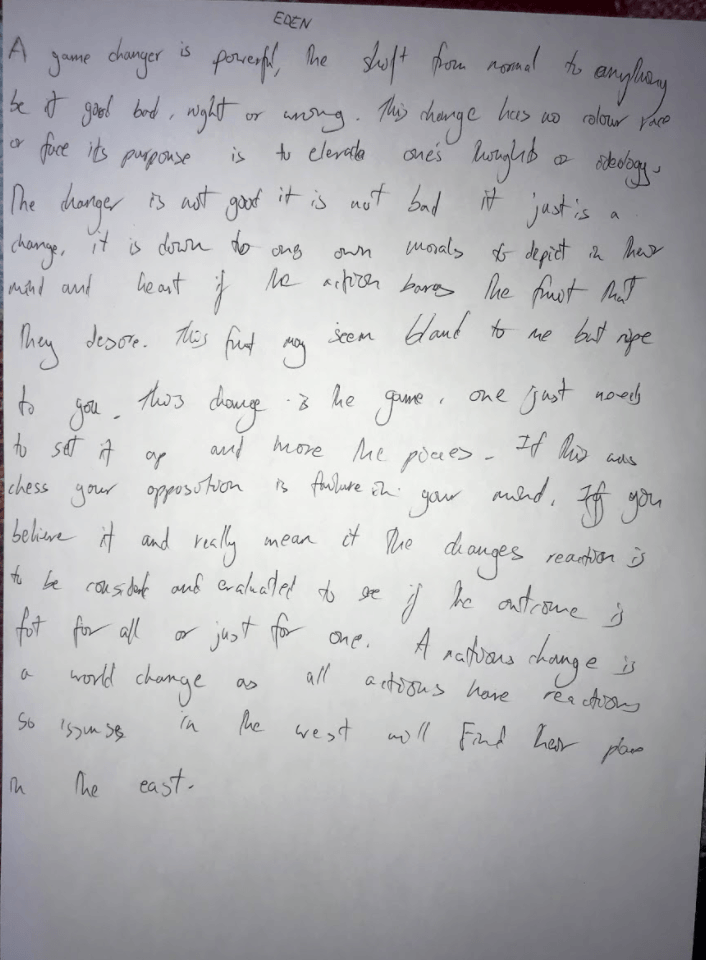 EDEN
A game changer is powerful, the shift from normal to anything
be it good bad, right or wrong. This change has no colour race
or face its purpouse is to elevate one's thoughts or ideology.
The changer is not good it is not bad it just is a
change, it is down to ones own morals to depict in their
mind and heart if the action bares the fruit that
they desire. This fruit may seem bland to me but ripe
to you. This change is the game, one just needs
to set it up and move the pieces. If this was
chess your opposition is failure in your mind. If you
believe it and really mean it the changes reaction is
to be considerd and evaluated to see if the outcome is
fit for all or just for one. A nations change is
a world change as all actions have reactions
so issuses in the west will Find their place
in the east.